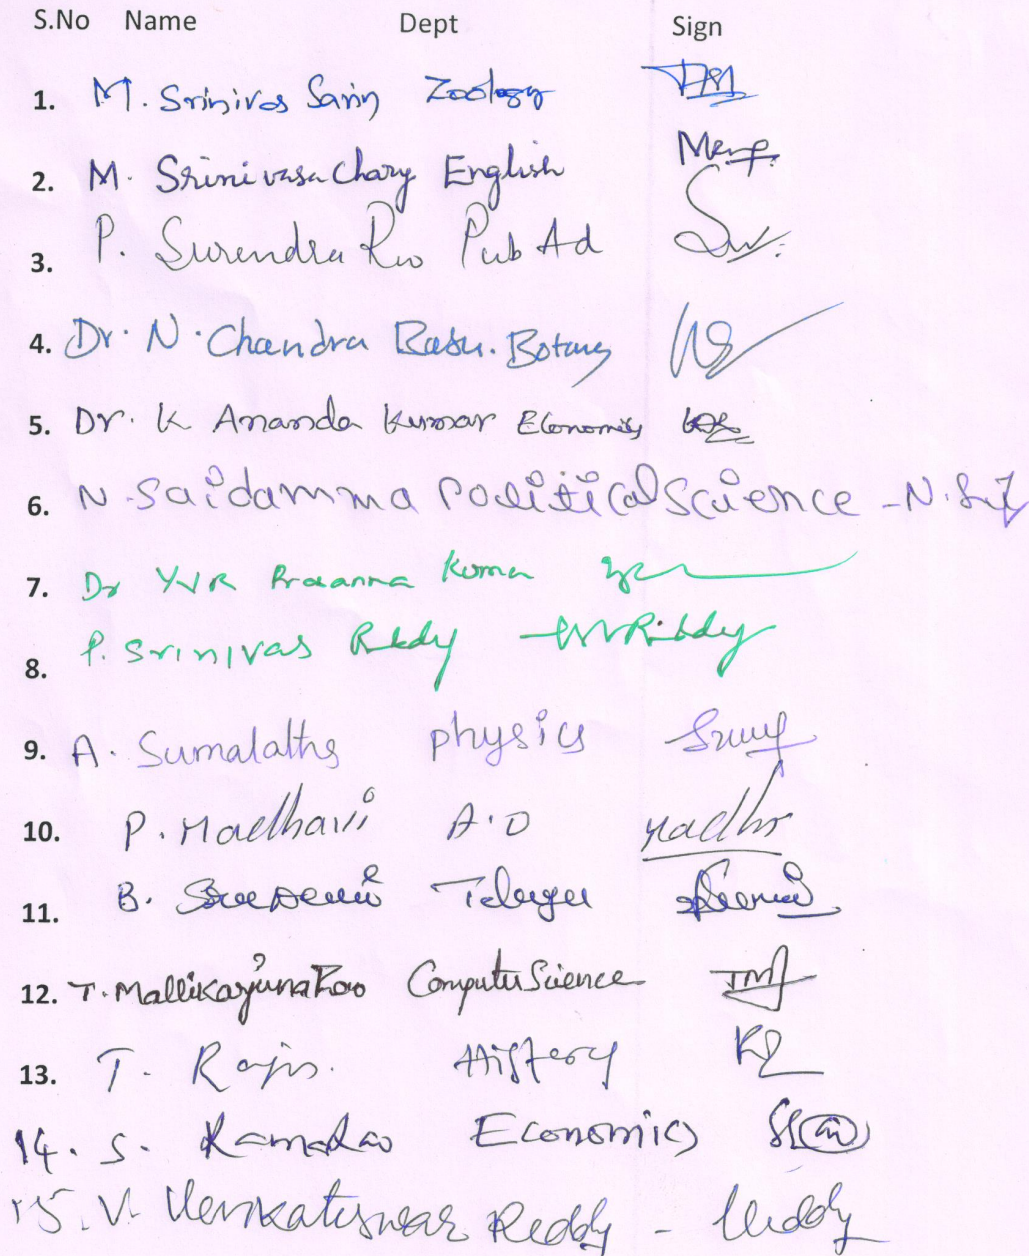 S.No Name Dept Sign
1. M. Srinivas Zoology
2. M. Srinivasa Chary English
3. P. Surendra Rao Pub Ad
4. Dr. N. Chandra Botany
5. Dr. K Ananda Kumar Economics
6. N. Saidamma Political Science - N.
7. Dr YVR Prasanna Kumar
8. P. Srinivas Reddy
9. A. Sumalatha physics
10. P. Madhavi A.O
11. B. Telugu
12. T. Mallikarjuna Rao Computer Science
13. T. Raju History
14. S. Ramarao Economics
15. V. Venkateswar Reddy -